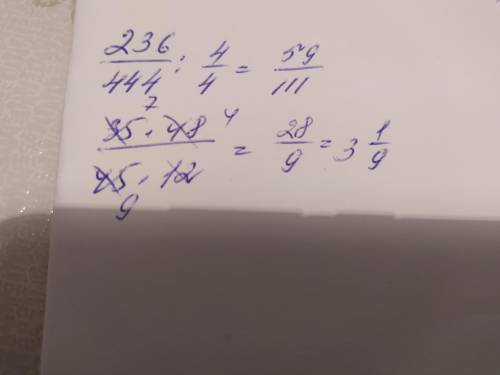 236/444 : 4/4 = 59/111
35 · 48 / 45 · 12 = 28/9 = 3 1/9
7 4
9